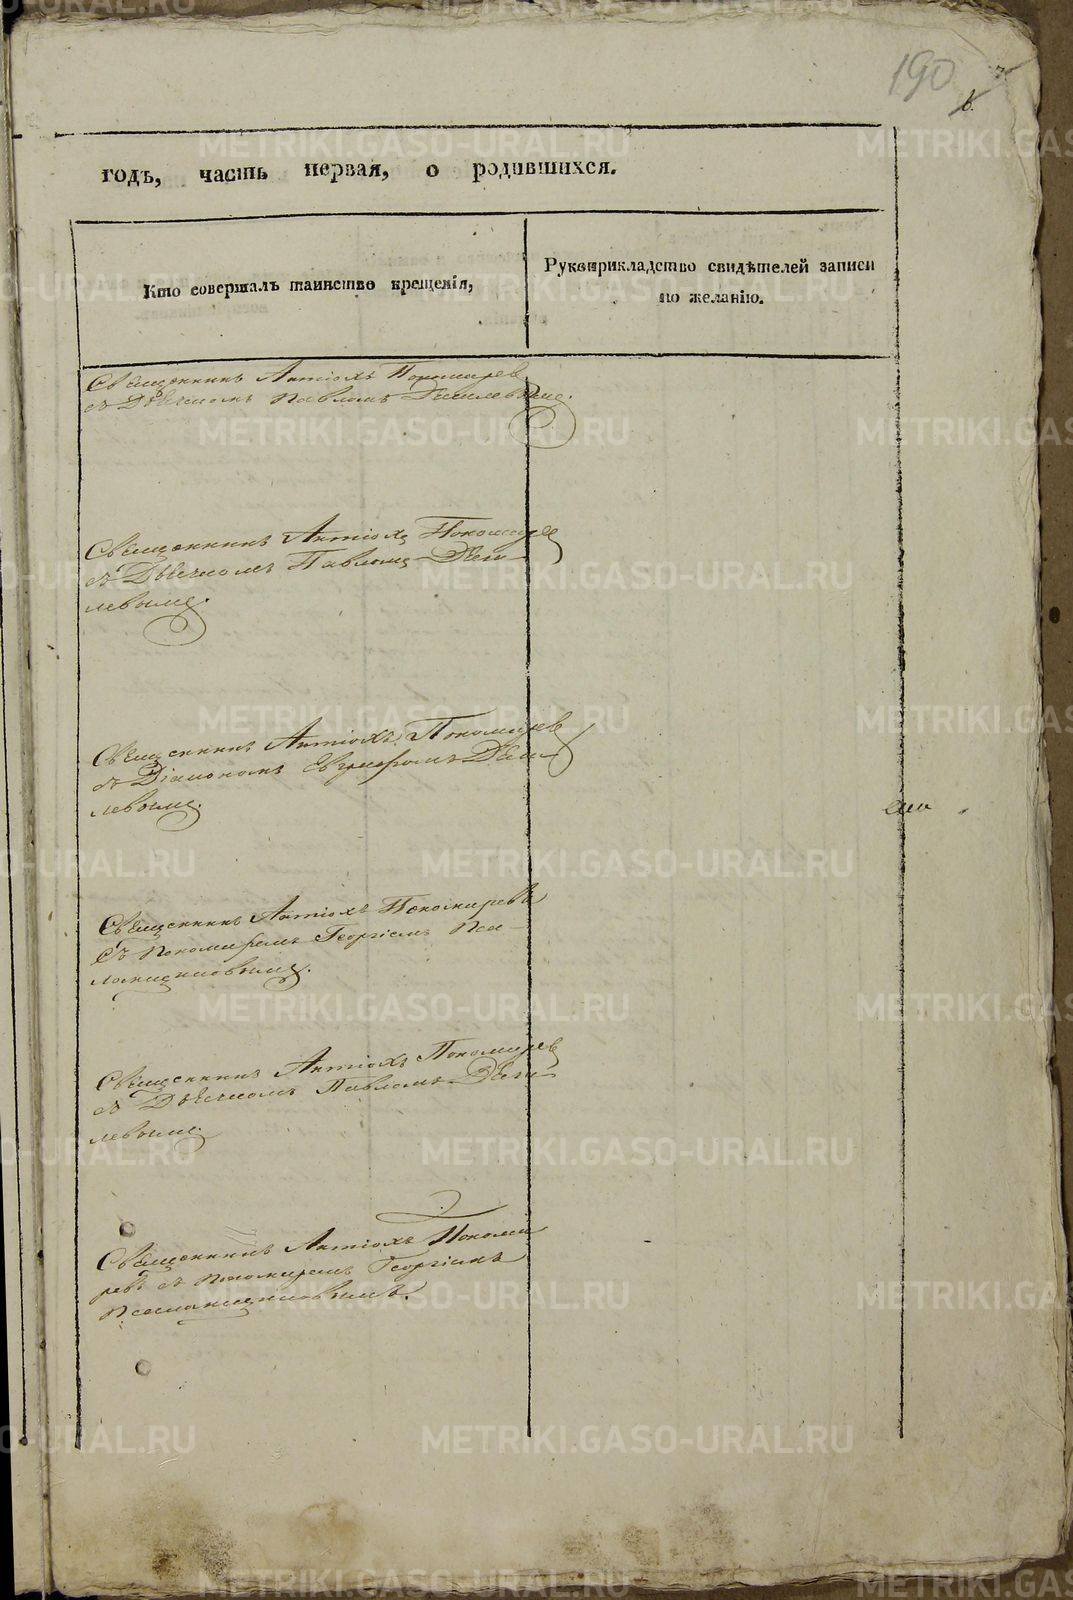 190
6.
годъ, часть первая, о родившихся.
Кто совершалъ таинство крещенія,
Рукоприкладство свидѣтелей записи
по желанію.
Священникъ Антіохъ Пономарев
съ Дьячкомъ Павломъ
Священникъ Антіохъ Пономарев
съ Дьячкомъ Павломъ
левымъ.
Священникъ Антіохъ Пономарев
съ Діакономъ
левымъ.
Священникъ Антіохъ Пономаревъ
съ Пономаремъ Георгіемъ Пса-
ломщиковымъ.
Священникъ Антіохъ Пономарев
съ Дьячкомъ Павломъ
левымъ.
Священникъ Антіохъ Понома
ревъ съ Пономаремъ Георгіемъ
Псаломщиковымъ.
METRIKI.GASO-URAL.RU